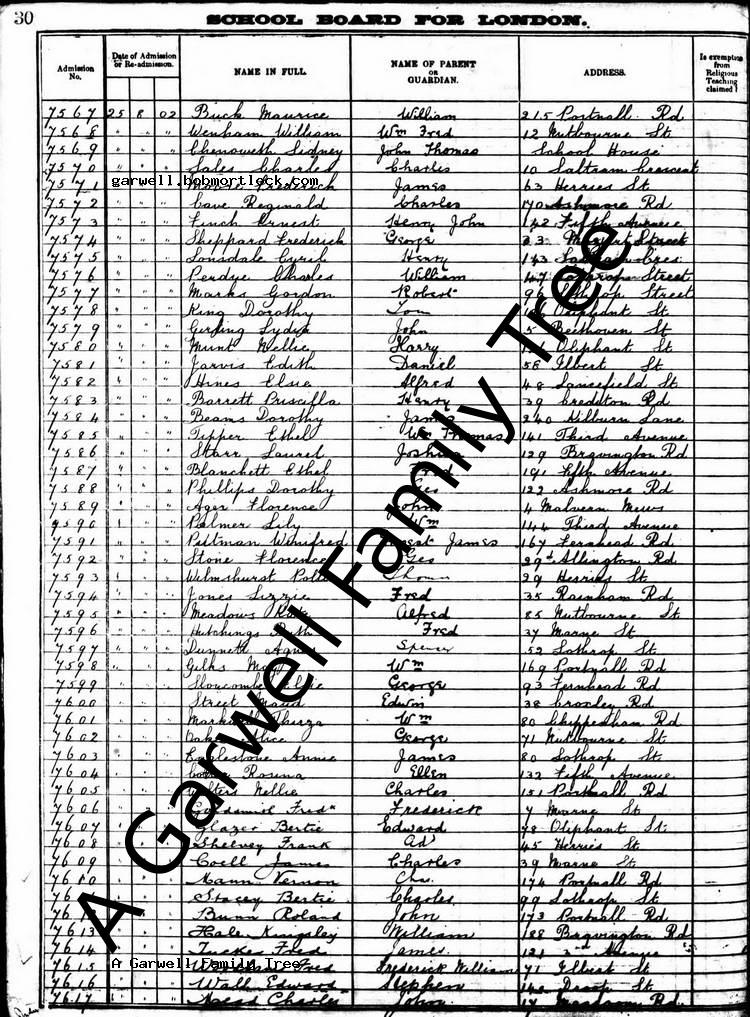 30
SCHOOL BOARD FOR LONDON.
Admission No. Date of Admission or Re-admission. NAME IN FULL. NAME OF PARENT OR GUARDIAN. ADDRESS. Is exemption from Religious Teaching claimed?
7567 25 8 02 Buck Maurice William 215 Portnall Rd
7568 " " " Wenham William Wm Fred 12 Nutbourne St
7569 " " " Chenoweth Sidney John Thomas School House
7570 " " " Sales Charles Charles 10 Saltram Crescent
7571 garwell.bobmortlock.com James 63 Herries St
7572 " " " Cave Reginald Charles 170 Ashmore Rd
7573 " " " Finch Ernest Henry John 142 Fifth Avenue
7574 " " " Sheppard Frederick George Street
7575 " " " Lonsdale Cyril Henry 143 Cres
7576 " " " Perdye Charles William Street
7577 " " " Marks Gordon Robert Lothrop Street
7578 " " " King Dorothy Tom Oliphant St
7579 " " " Lydia John 5 Beethoven St
7580 " " " Munt Nellie Harry Oliphant St
7581 " " " Jarvis Edith Daniel 58 Ilbert St
7582 " " " Hines Elsie Alfred 48 Lancefield St
7583 " " " Barrett Priscilla Henry 39 Credition Rd
7584 " " " Beams Dorothy James 240 Kilburn Lane
7585 " " " Tipper Ethel Wm Thomas 141 Third Avenue
7586 " " " Starr Laurel Joshua 129 Bravington Rd
7587 " " " Blanchett Ethel Fred 191 Fifth Avenue
7588 " " " Phillips Dorothy Geo 122 Ashmore Rd
7589 " " " Ager Florence John 4 Malvern Mews
7590 " " " Palmer Lily Wm 144 Third Avenue
7591 " " " Pittman Winifred James 167 Fernhead Rd
7592 " " " Stone Florence Geo 29a Allington Rd
7593 " " " Wilmshurst 29 Herries St
7594 " " " Jones Lizzie Fred 35 Rainham Rd
7595 " " " Meadows Alfred 85 Nutbourne St
7596 " " " Hutchings Ruth Fred 37 Marne St
7597 " " " Dunnett Agnes Spencer 52 Lothrop St
7598 " " " Gilks May Wm 169 Portnall Rd
7599 " " " Slocombe George 93 Fernhead Rd
7600 " " " Street Maud Edwin 38 Croxley Rd
7601 " " " Thurza Wm 80 Chippenham Rd
7602 " " " Alice George 71 Nutbourne St
7603 " " " Annie James 80 Lothrop St
7604 " " " Rosina Ellen 132 Fifth Avenue
7605 " " " Nellie Charles 151 Portnall Rd
7606 " " " Goldsmith Fredk Frederick 7 Marne St
7607 " " " Glazer Bertie Edward 78 Oliphant St
7608 " " " Shelvey Frank Ad 45 Herries St
7609 " " " Coell James Charles 39 Marne St
7610 " " " Mann Vernon Chas 174 Portnall Rd
" " Stacey Bertie Charles 99 Lothrop St
" " Bunn Roland John 173 Portnall Rd
7613 " " Hale Kingsley William 188 Bravington Rd
7614 " " Tucker Fred James 121 Avenue
7615 A Garwell Family Tree Fred Frederick William 71 Ilbert St
7616 " " " Wall Edward Stephen Droop St
7617 " " " Mead Charles John Rd
A Garwell Family Tree